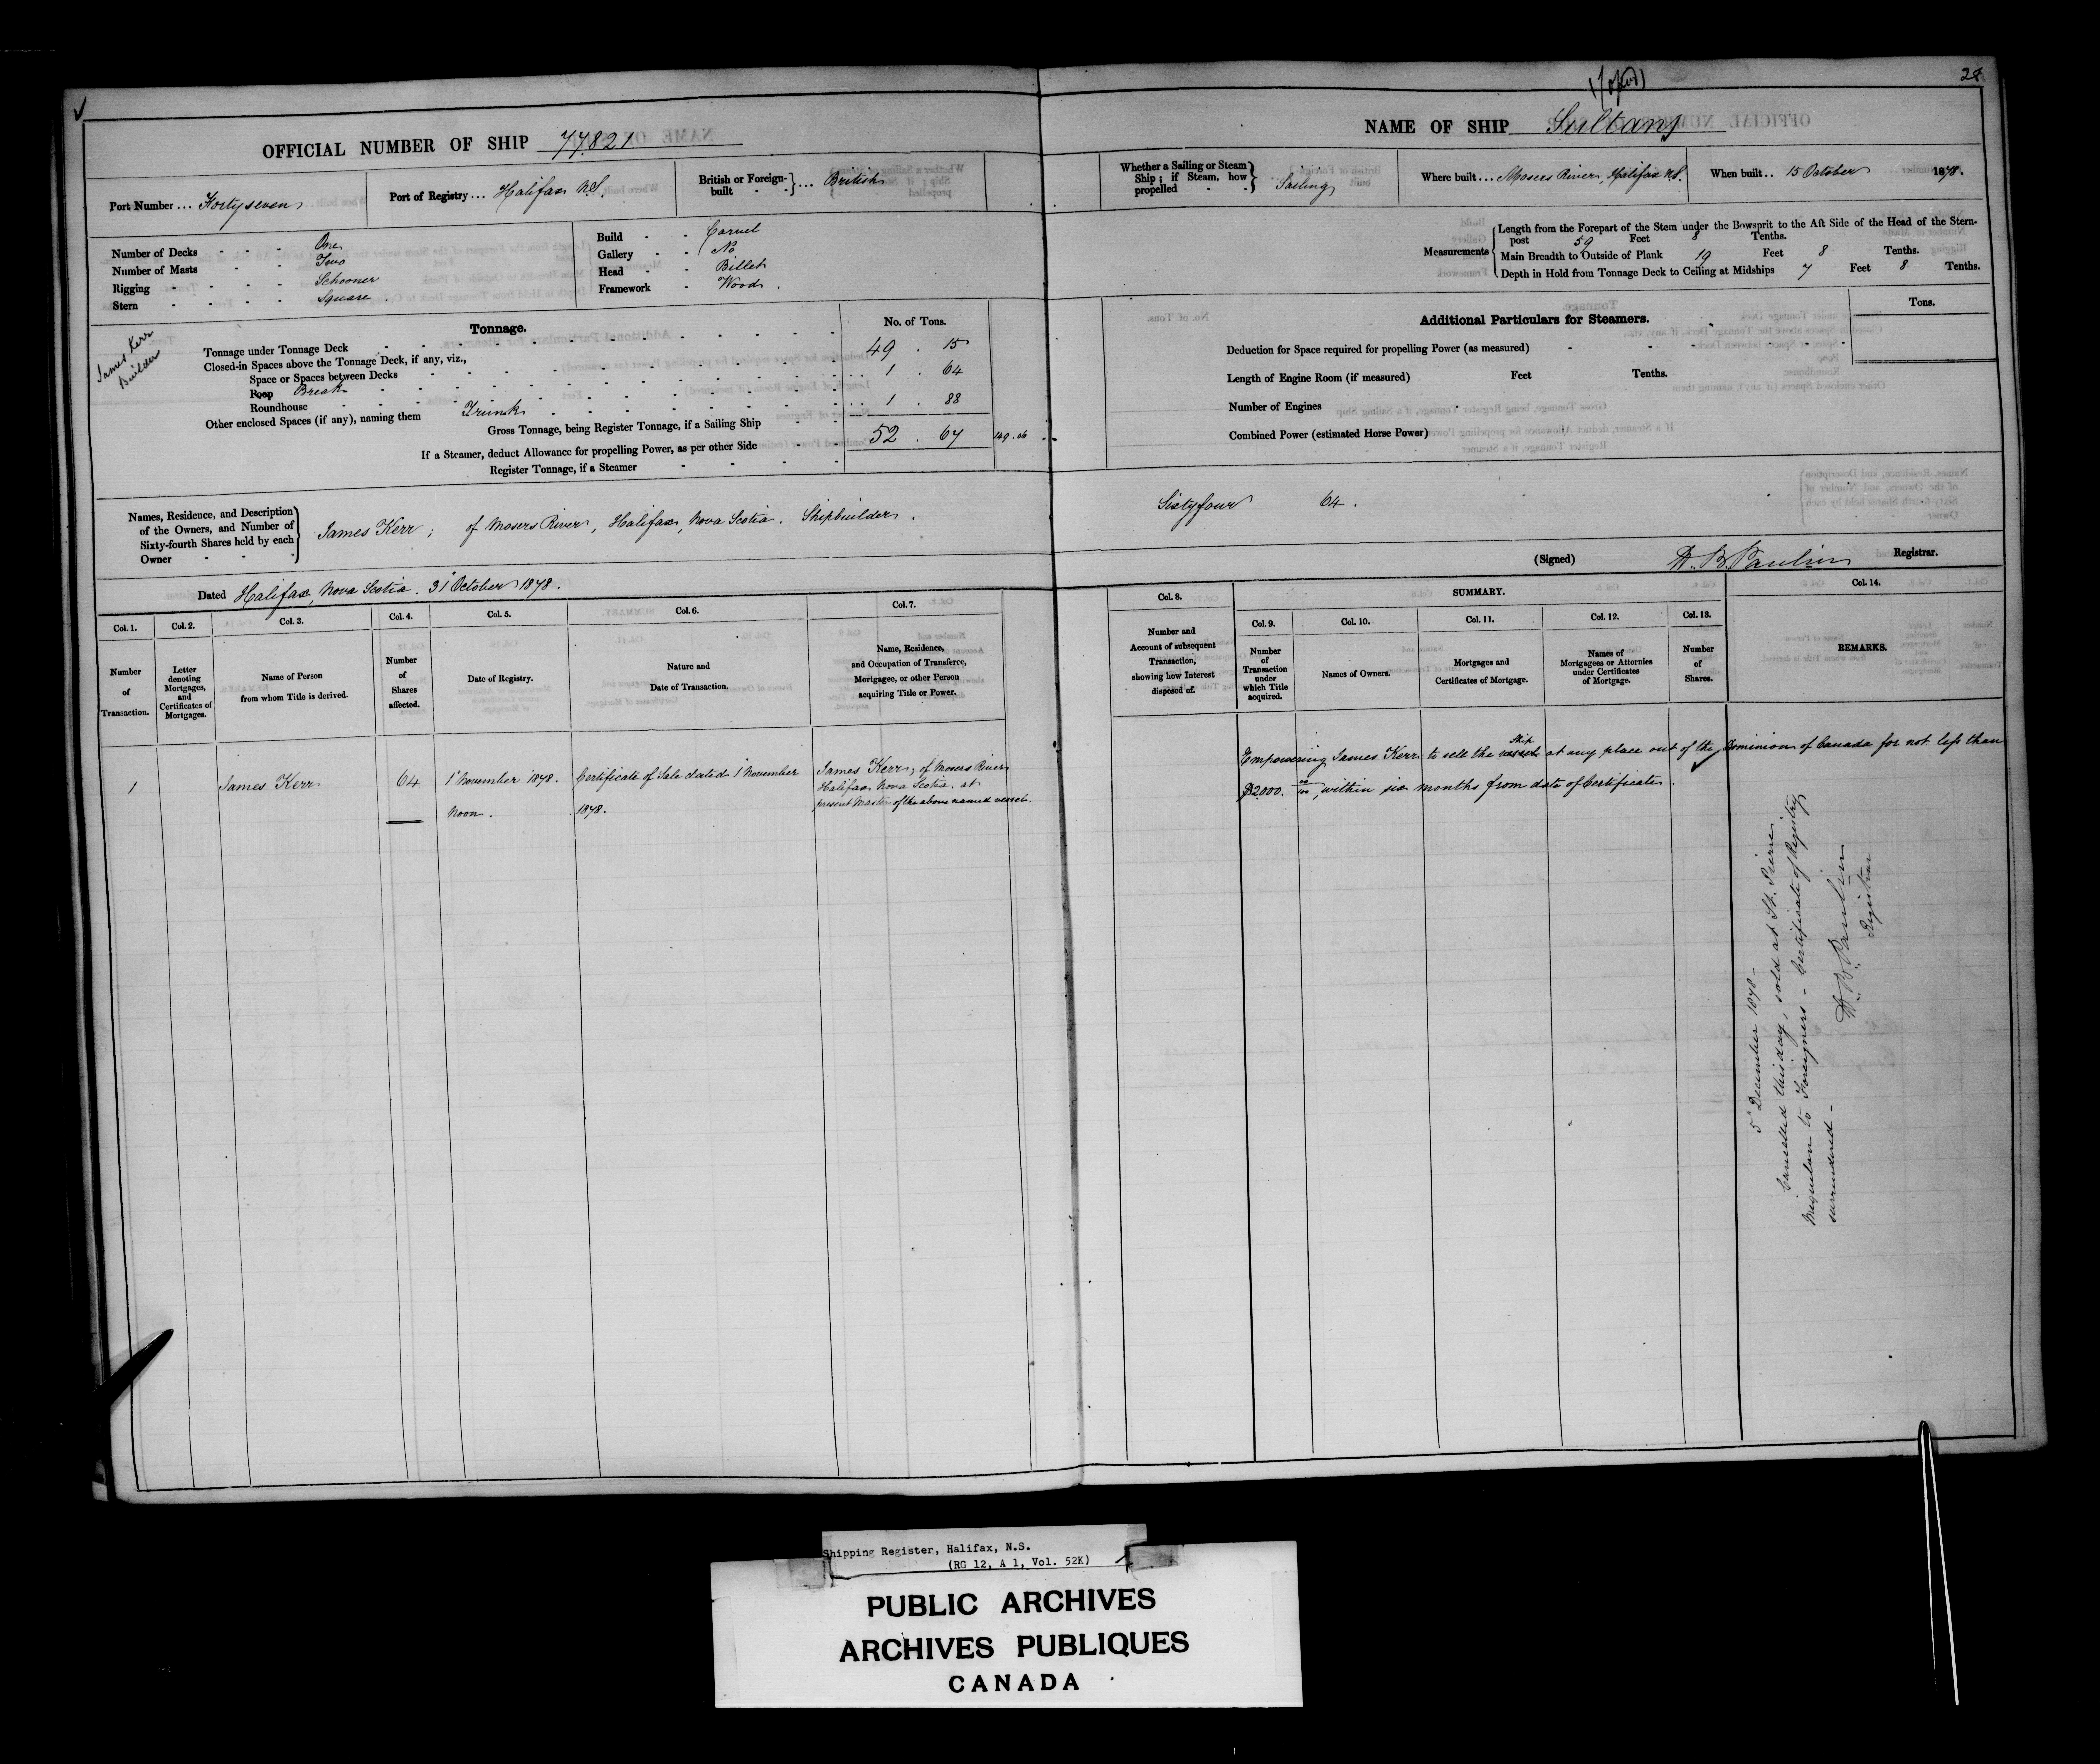 28
OFFICIAL NUMBER OF SHIP 77.821
NAME OF SHIP Sultan
Port Number ... Fortyseven
Port of Registry ... Halifax N.S.
British or Foreign-built ... British
Whether a Sailing or Steam Ship; if Steam, how propelled Sailing
Where built ... Mosers River, Halifax N.S.
When built .. 15 October 1878.
Number of Decks One
Number of Masts Two
Rigging Schooner
Stern Square.
Build Carvel
Gallery No
Head Billet
Framework Wood.
Measurements
Length from the Forepart of the Stem under the Bowsprit to the Aft Side of the Head of the Stern-
post 59 Feet 8 Tenths.
Main Breadth to Outside of Plank 19 Feet 8 Tenths.
Depth in Hold from Tonnage Deck to Ceiling at Midships 7 Feet 8 Tenths.
James Kerr
Builder
Tonnage.
No. of Tons.
Tonnage under Tonnage Deck 49 . 15
Closed-in Spaces above the Tonnage Deck, if any, viz.,
Space or Spaces between Decks
Poop Break 1 . 64
Roundhouse
Other enclosed Spaces (if any), naming them Trunk 1 . 88
Gross Tonnage, being Register Tonnage, if a Sailing Ship 52 . 67
149.06
If a Steamer, deduct Allowance for propelling Power, as per other Side
Register Tonnage, if a Steamer
Additional Particulars for Steamers.
Tons.
Deduction for Space required for propelling Power (as measured)
Length of Engine Room (if measured) Feet Tenths.
Number of Engines
Combined Power (estimated Horse Power)
Names, Residence, and Description
of the Owners, and Number of
Sixty-fourth Shares held by each
Owner
James Kerr; of Mosers River, Halifax, Nova Scotia. Shipbuilder.
Sixtyfour 64.
Dated Halifax, Nova Scotia. 31 October 1878.
(Signed) W. B. Paulin Registrar.
Col. 1.
Number of Transaction.
Col. 2.
Letter denoting Mortgages, and Certificates of Mortgages.
Col. 3.
Name of Person from whom Title is derived.
Col. 4.
Number of Shares affected.
Col. 5.
Date of Registry.
Col. 6.
Nature and Date of Transaction.
Col. 7.
Name, Residence, and Occupation of Transferee, Mortgagee, or other Person acquiring Title or Power.
Col. 8.
Number and Account of subsequent Transaction, showing how Interest disposed of.
SUMMARY.
Col. 9.
Number of Transaction under which Title acquired.
Col. 10.
Names of Owners.
Col. 11.
Mortgages and Certificates of Mortgage.
Col. 12.
Names of Mortgagees or Attornies under Certificates of Mortgage.
Col. 13.
Number of Shares.
Col. 14.
REMARKS.
1
James Kerr
64
1 November 1878.
Noon.
Certificate of Sale dated 1 November
1878.
James Kerr; of Mosers River
Halifax Nova Scotia. at
present Master of the above named vessel.
Empowering James Kerr to sell the vessel Ship at any place out of the Dominion of Canada for not less than
$2000. 00/100, within six months from date of Certificate.
5 December 1878 -
Cancelled this day, sold at St. Pierre
Miquelon to Foreigners - Certificate of Registry
surrendered -
W. B. Paulin
Registrar
Shipping Register, Halifax, N.S.
(RG 12, A 1, Vol. 52K)
PUBLIC ARCHIVES
ARCHIVES PUBLIQUES
CANADA